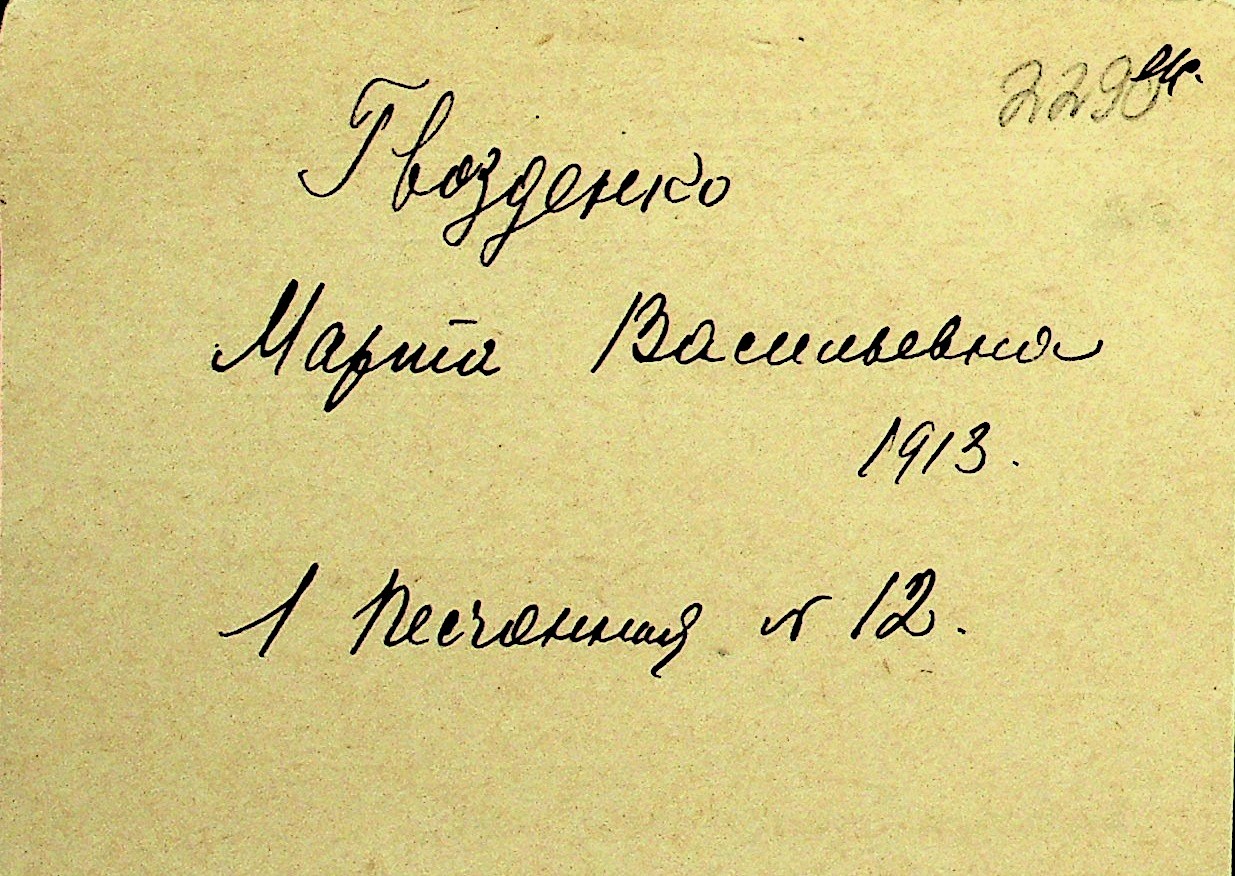 2290
Гвозденко
Марта Васильевна
1913.
1 Песчанная № 12.